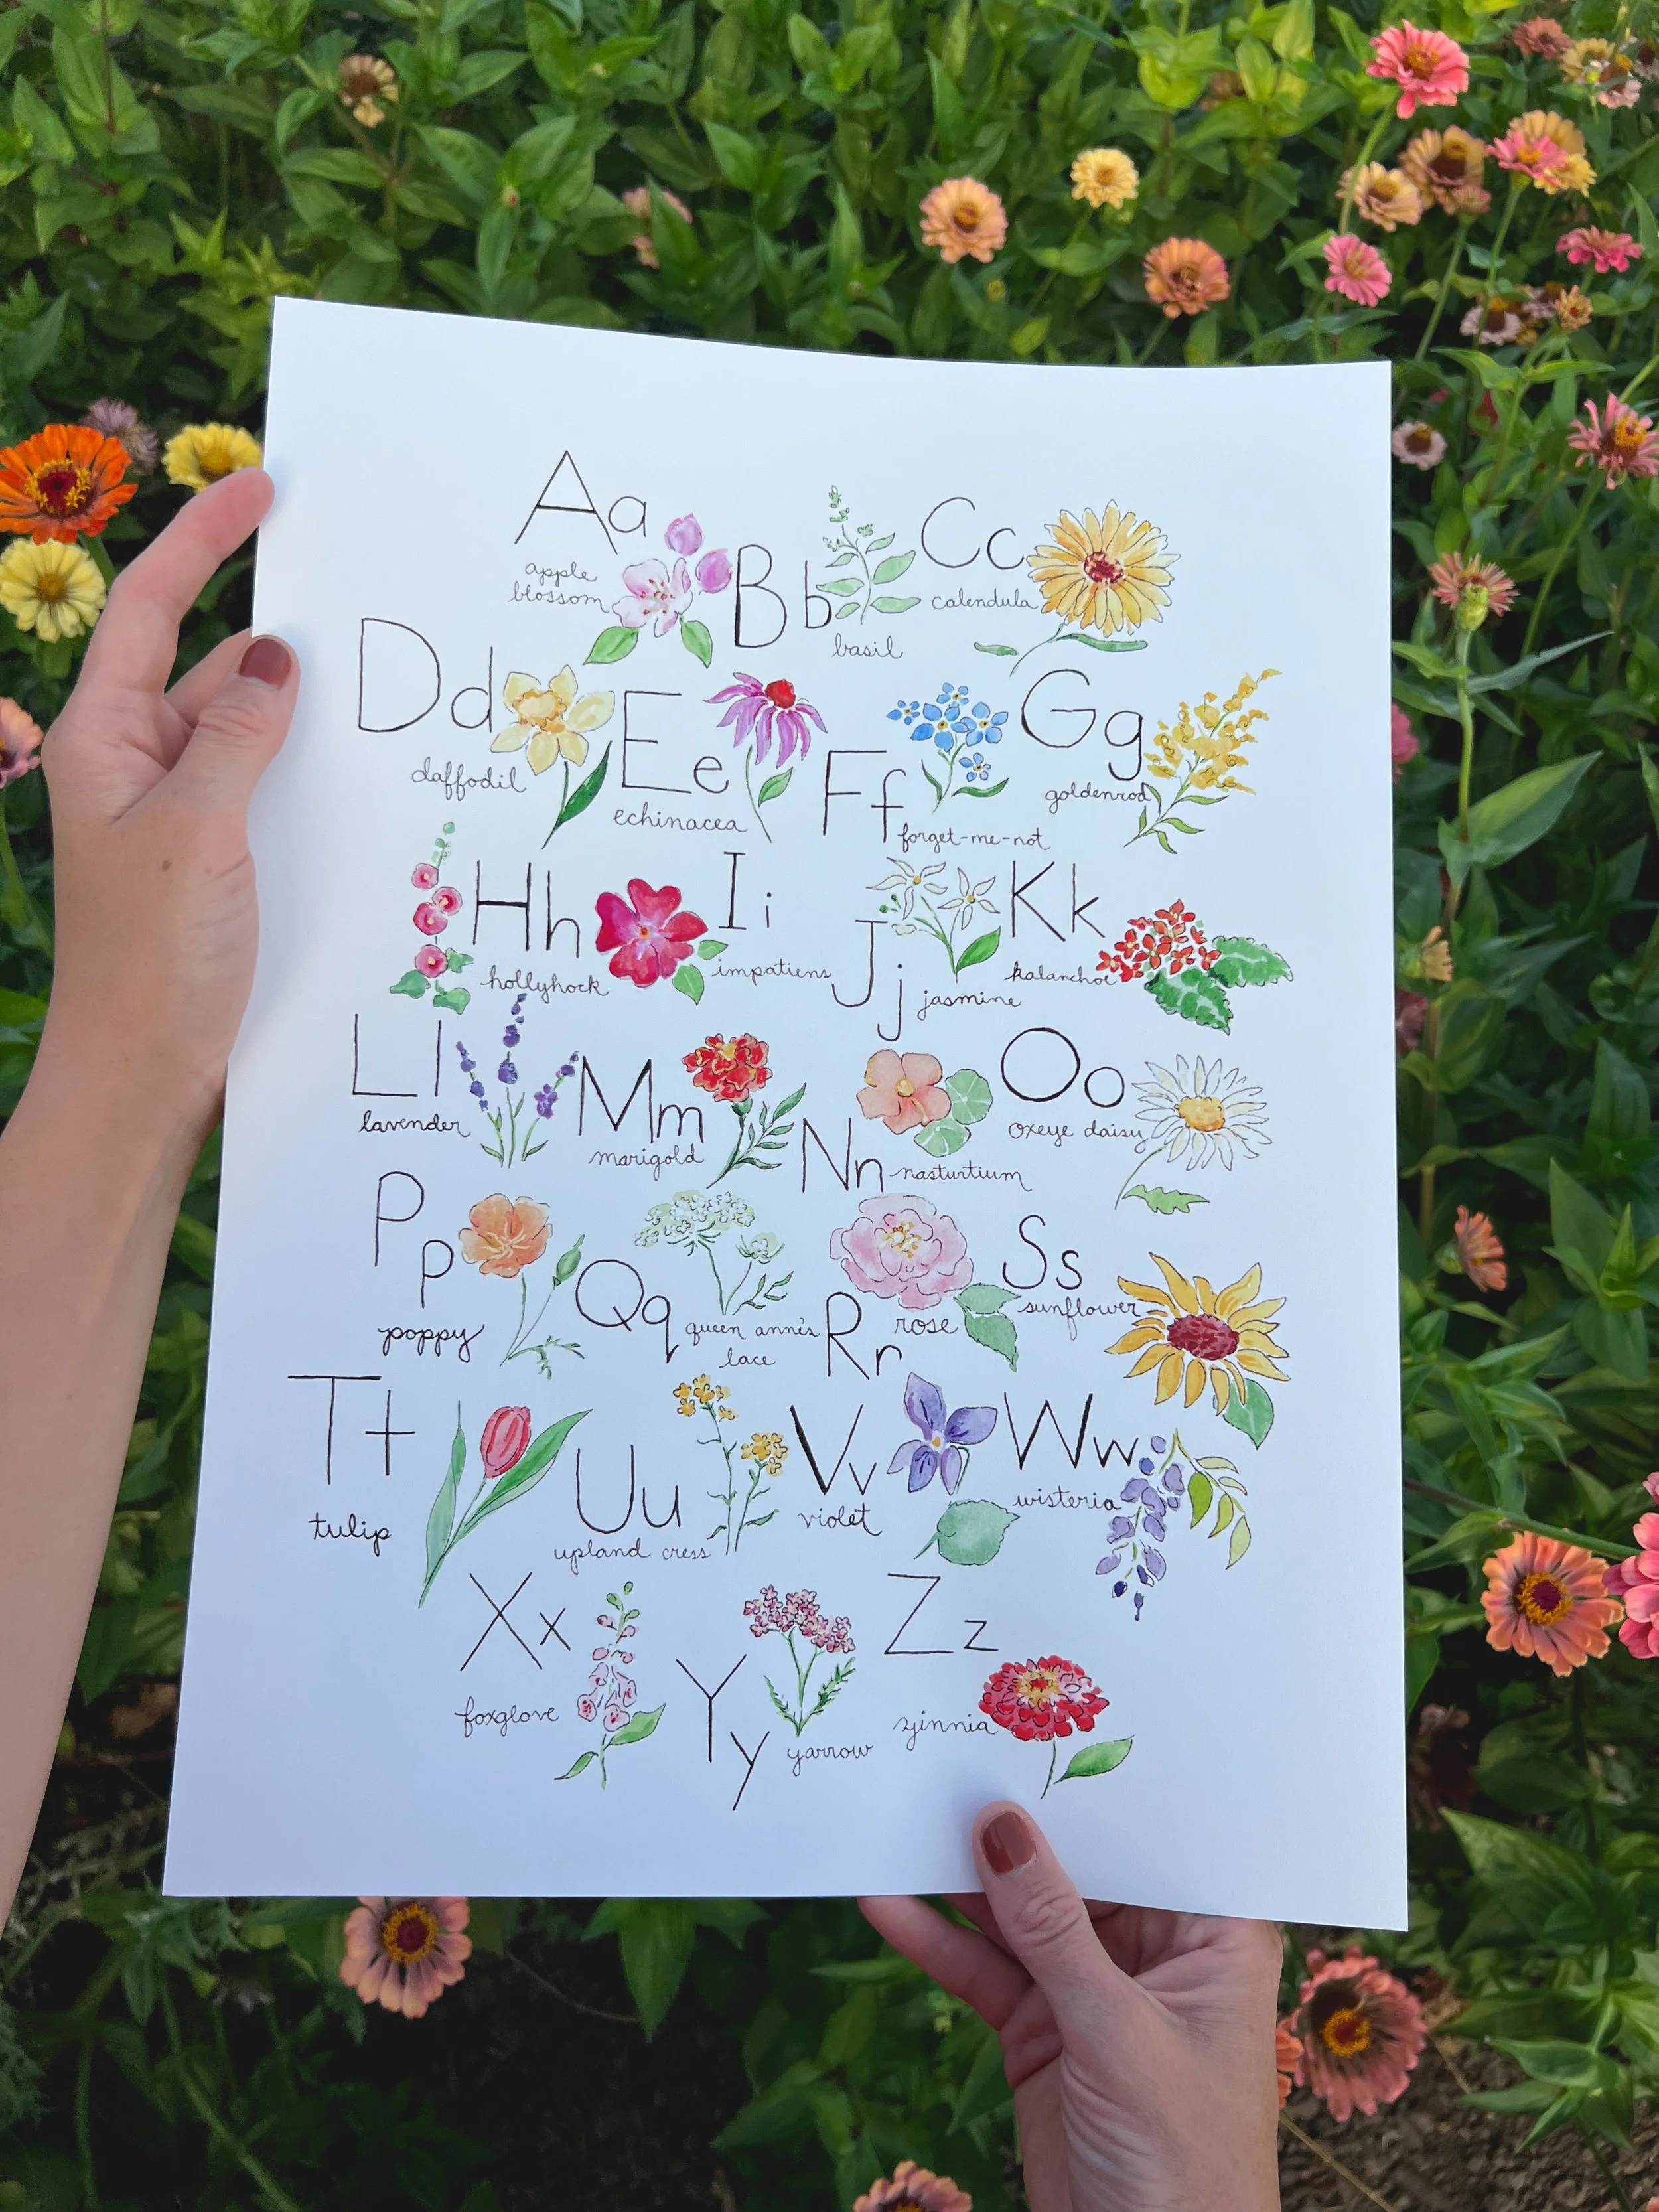 Aa
apple
blossom
Bb
basil
Cc
calendula
Dd
daffodil
Ee
echinacea
Ff
forget-me-not
Gg
goldenrod
Hh
hollyhock
Ii
impatiens
Jj
jasmine
Kk
kalanchoe
Ll
lavender
Mm
marigold
Nn
nasturtium
Oo
oxeye daisy
Pp
poppy
Qq
queen anne's
lace
Rr
rose
Ss
sunflower
Tt
tulip
Uu
upland cress
Vv
violet
Ww
wisteria
Xx
foxglove
Yy
yarrow
Zz
zinnia